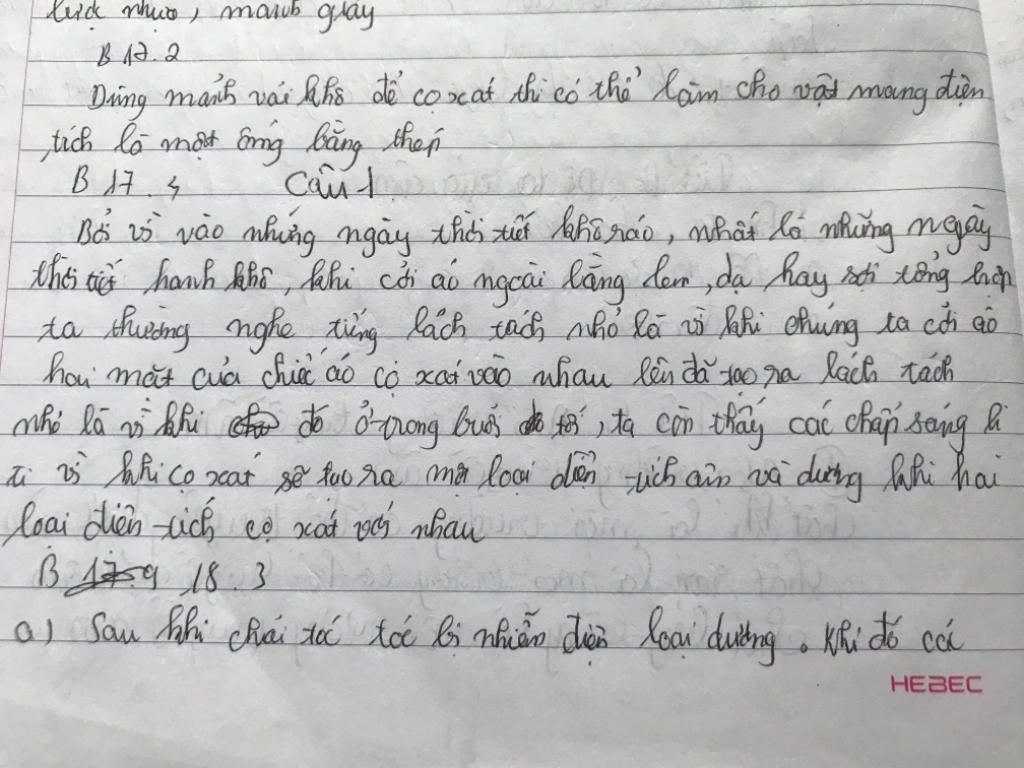 nhựa, mảnh giấy
B 17.2
Dùng mảnh vải khô để cọ xát thì có thể làm cho vật mang điện
tích là một ống bằng thép
B 17.4 Câu 1
Bởi vì vào những ngày thời tiết khô ráo, nhất là những ngày
thời tiết hanh khô, khi cởi áo ngoài bằng len, dạ hay sợi tổng hợp
ta thường nghe tiếng lách tách nhỏ là vì khi chúng ta cởi áo
hai mặt của chiếc áo cọ xát vào nhau lên đã tạo ra lách tách
nhỏ là vì khi đó ở trong buổi tối, ta còn thấy các chấp sáng li
ti vì khi cọ xát sẽ tạo ra loại điện tích âm và dương khi hai
loại điện tích cọ xát với nhau
B 18.3
a) Sau khi chải tóc tóc bị nhiễn điện loại dương. Khi đó cá
HEBEC